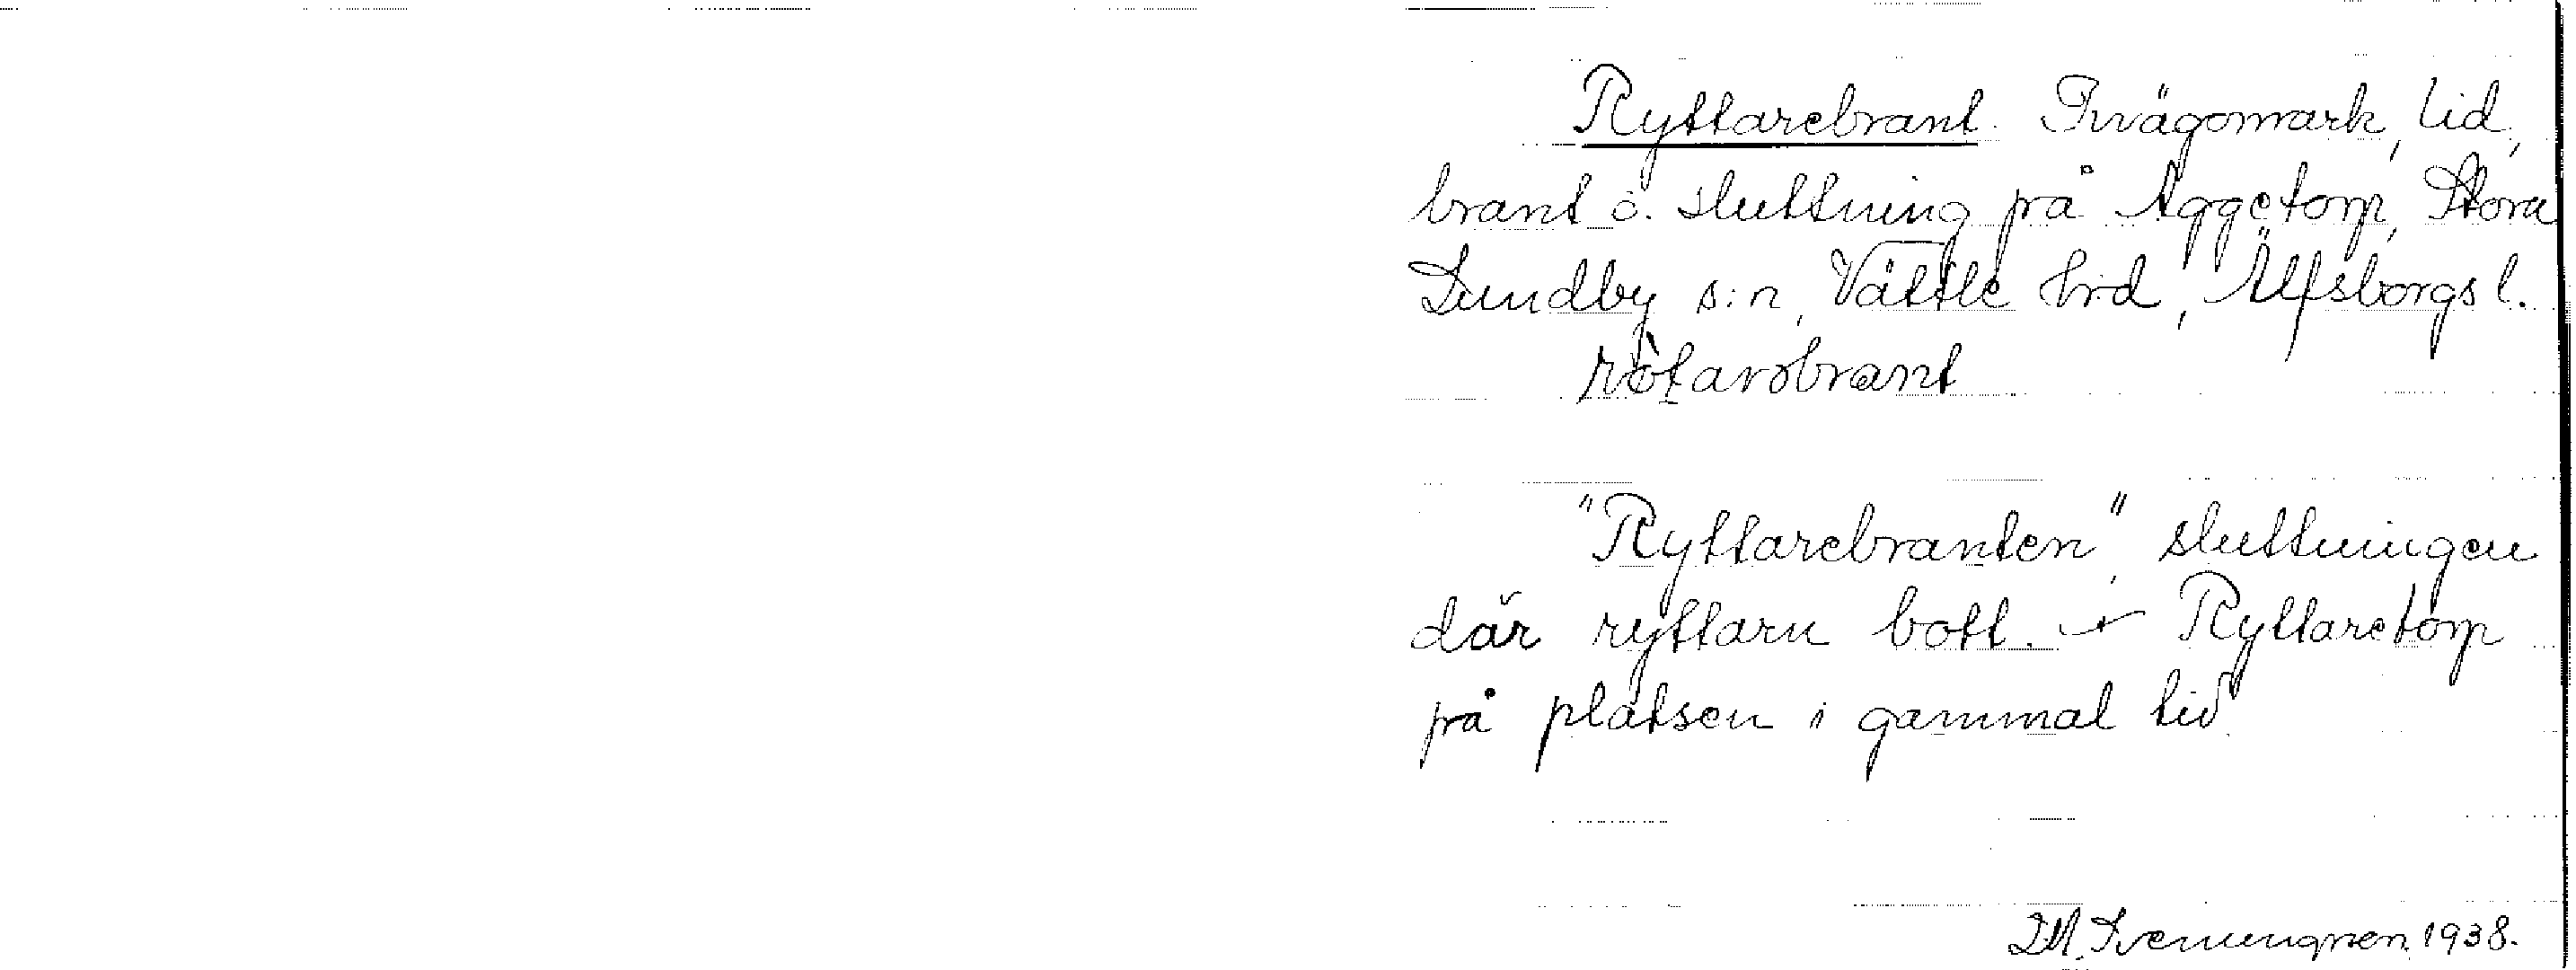 Ryttarebrant. Tvägomark, lid,
brant o. sluttning på Aggetorp, Stora
Lundby s:n, Vättle hd, Älfsborgs l.
"Ryttarebranten", sluttningen
där ryttarn bott. Ryttaretorp
på platsen i gammal tid
1938.